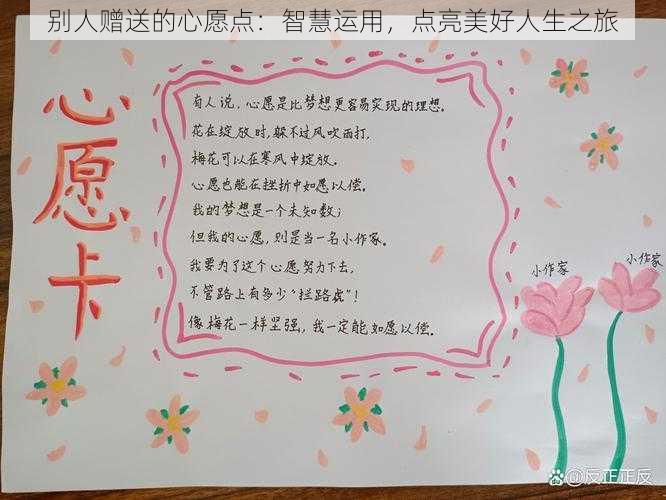 别人赠送的心愿点：智慧运用，点亮美好人生之旅
心愿卡
有人说，心愿是比梦想更容易实现的理想。
花在绽放时，躲不过风吹雨打，
梅花可以在寒风中绽放。
心愿也能在挫折中如愿以偿。
我的梦想是一个未知数；
但我的心愿，则是当一名小作家。
我要为了这个心愿努力下去，
不管路上有多少“拦路虎”！
像梅花一样坚强，我一定能如愿以偿。
小作家
小作家
百度@反正正反